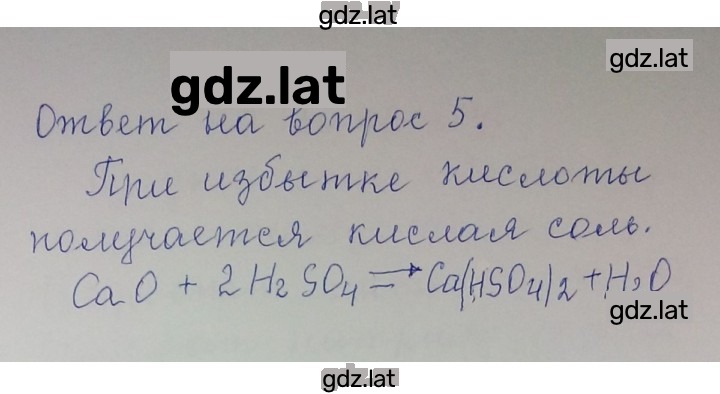 gdz.lat
gdz.lat
gdz.lat
Ответ на вопрос 5.
При избытке кислоты
получается кислая соль.
CaO + 2H₂SO₄ ⇒ Ca(HSO₄)₂ + H₂O
gdz.lat
gdz.lat